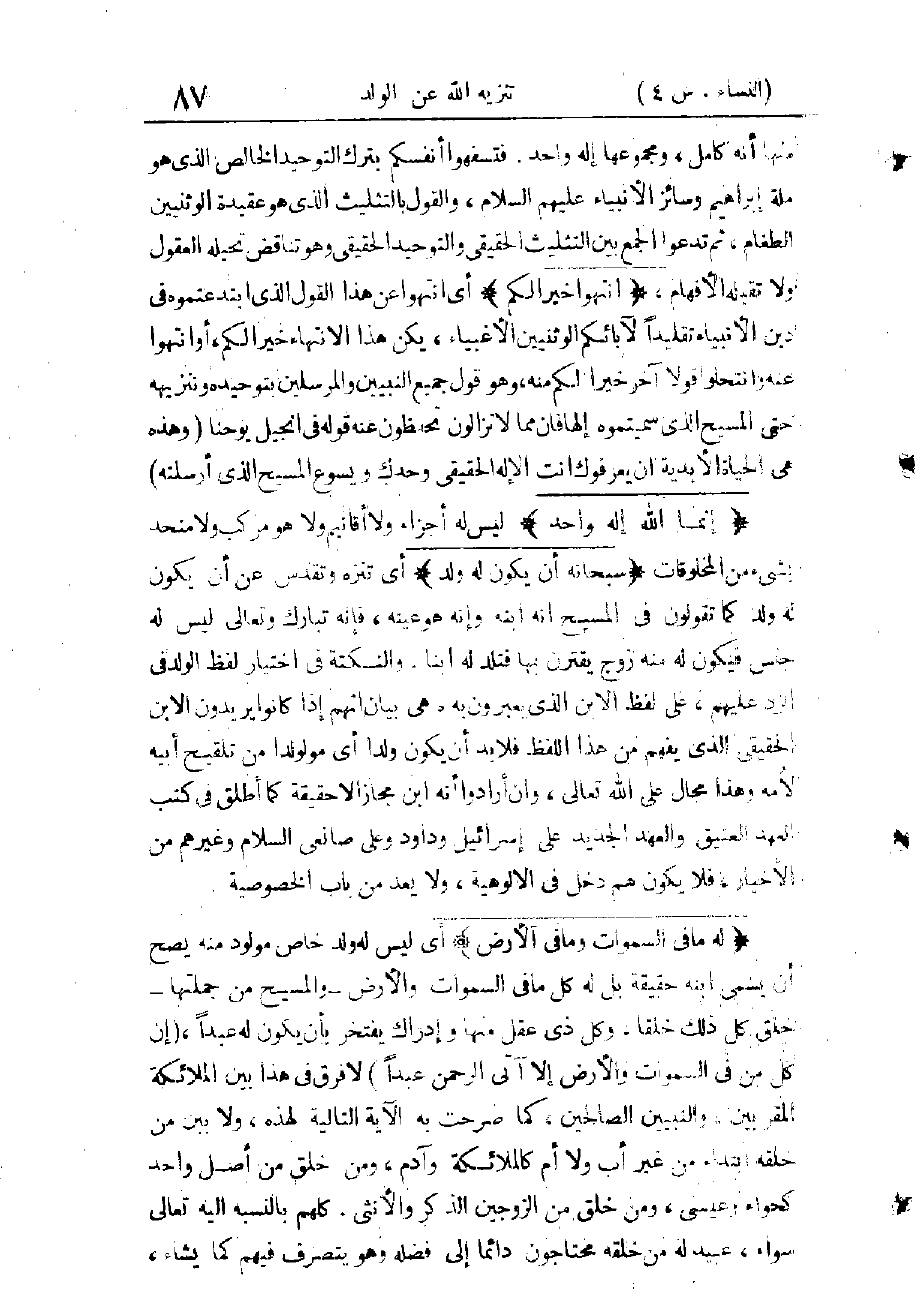 (النساء . س ٤) تنزيه الله عن الولد ٨٧
منها أنه كامل ، ومجموعها إله واحد . فتسفهوا أنفسكم بترك التوحيد الخالص الذى هو
ملة إبراهيم وسائر الأنبياء عليهم السلام ، والقول بالتثليث الذى هو عقيدة الوثنيين
الطغام ، ثم تدعوا الجمع بين التثليث الحقيقى والتوحيد الحقيقى وهو تناقض تحيله العقول
ولا تقبله الأفهام ، ﴿ انتهوا خيرا لكم ﴾ أى انتهوا عن هذا القول الذى ابتدعتموه فى
دين الأنبياء تقليداً لآبائكم الوثنيين الأغبياء ، يكن هذا الانتهاء خيرا لكم ، أو انتهوا
عنه وانتحلوا قولا آخر خيرا لكم منه ، وهو قول جميع النبيين والمرسلين بتوحيده وتنزيهه
حتى المسيح الذى سميتموه إلها فان مما لا تزالون تحفظون عنه قوله فى انجيل يوحنا ( وهذه
هى الحياة الأبدية ان يعرفوك انت الإله الحقيقى وحدك ويسوع المسيح الذى أرسلته )
﴿ إنمـا الله إله واحد ﴾ ليس له أجزاء ولا أقانيم ولا هو مركب ولا متحد
بشىء من المخلوقات ﴿ سبحانه أن يكون له ولد ﴾ أى تنزه وتقدس عن أن يكون
له ولد كما تقولون فى المسيح انه ابنه وإنه هو عينه ، فإنه تبارك وتعالى ليس له
جنس فيكون له منه زوج يقترن بها فتلد له ابنا . والنكتة فى اختيار لفظ الولد فى
الرد عليهم ، على لفظ الابن الذى يعبرون به ، هى بيان انهم إذا كانوا يريدون الابن
الحقيقى الذى يفهم من هذا اللفظ فلابد أن يكون ولدا أى مولودا من تلقيح أبيه
لأمه وهذا محال على الله تعالى ، وان أرادوا أنه ابن مجازا لا حقيقة كما أطلق فى كتب
العهد العتيق والعهد الجديد على إسرائيل وداود وعلى صانعى السلام وغيرهم من
الأخيار ، فلا يكون هم دخل فى الالوهية ، ولا يعد من باب الخصوصية
﴿ له ما فى السموات وما فى الأرض ﴾ أى ليس له ولد خاص مولود منه يصح
أن يسمى ابنه حقيقة بل له كل ما فى السموات والأرض - والمسيح من جملتها -
خلق كل ذلك خلقا . وكل ذى عقل منها وإدراك يفتخر بأن يكون له عبداً ، (إن
كل من فى السموات والأرض إلا آتى الرحمن عبداً ) لا فرق فى هذا بين الملائكة
المقربين ، والنبيين الصالحين ، كما صرحت به الآية التالية لهذه ، ولا بين من
خلقه ابتداء من غير أب ولا أم كالملائكة وآدم ، ومن خلق من أصل واحد
كحواء وعيسى ، ومن خلق من الزوجين الذكر والأنثى . كلهم بالنسبه اليه تعالى
سواء ، عبيد له من خلقه محتاجون دائما إلى فضله وهو يتصرف فيهم كما يشاء ،